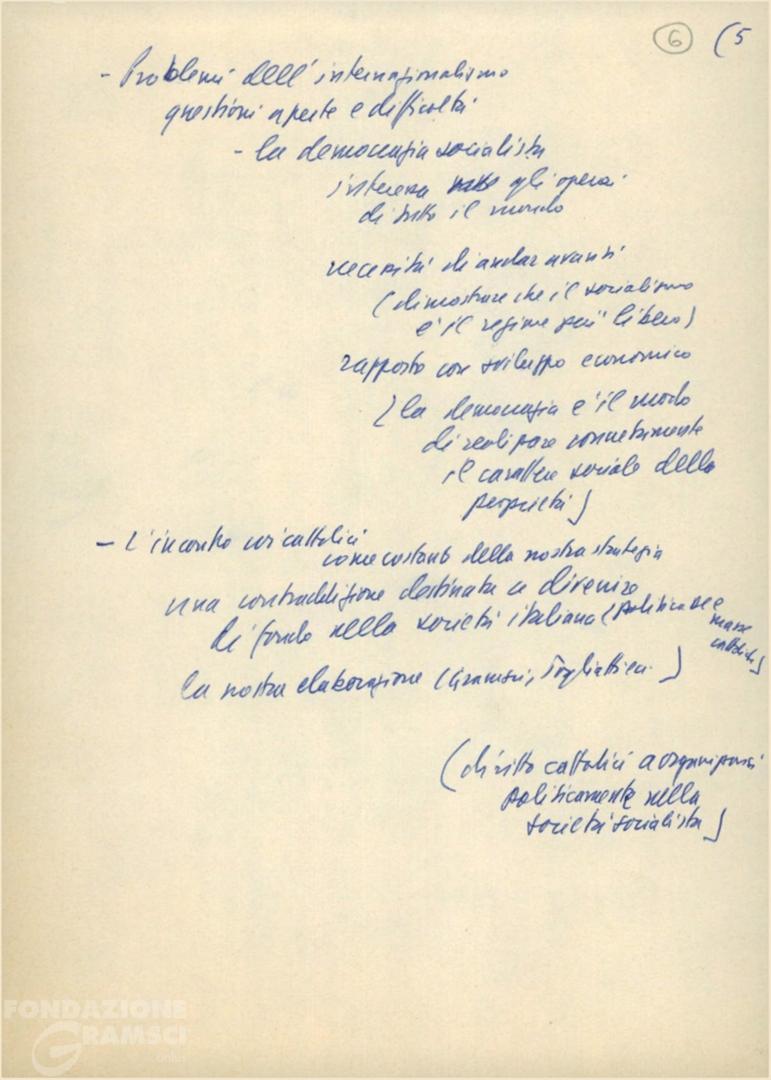 6 (5
- Problemi dell'internazionalismo
questioni aperte e difficoltà
- la democrazia socialista
interessa agli operai
di tutto il mondo
necessità di andar avanti
(dimostrare che il socialismo
è il regime più libero)
rapporto con sviluppo economico
(la democrazia è il modo
di realizzare concretamente
il carattere sociale della
proprietà)
- L'incontro coi cattolici
come costante della nostra strategia
una contraddizione destinata a divenire
di fondo nella società italiana (politica DC e
masse
cattoliche)
la nostra elaborazione (Gramsci, Togliatti ecc.)
(diritto cattolici a organizzarsi
politicamente nella
società socialista)
FONDAZIONE
GRAMSCI
onlus